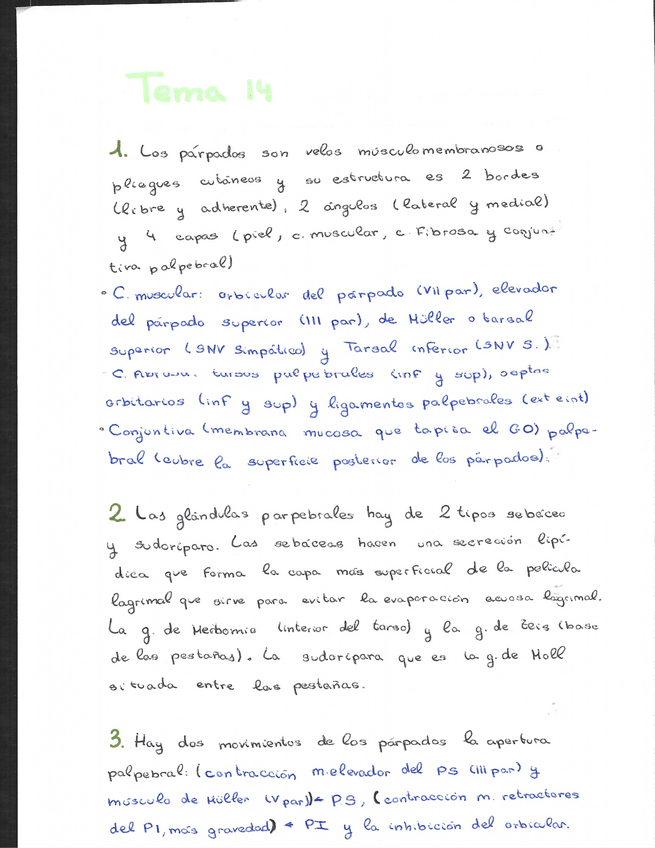 Tema 14
1. Los párpados son velos músculomembranosos o
pliegues cutáneos y su estructura es 2 bordes
(libre y adherente), 2 ángulos (lateral y medial)
y 4 capas (piel, c. muscular, c. Fibrosa y conjun-
tiva palpebral)
° C. muscular: orbicular del párpado (VII par), elevador
del párpado superior (III par), de Müller o tarsal
superior (SNV Simpático) y Tarsal inferior (SNV S.)
C. tarsus palpebrales (inf y sup), septos
orbitarios (inf y sup) y ligamentos palpebrales (ext e int)
° Conjuntiva (membrana mucosa que tapiza el GO) palpe-
bral (cubre la superficie posterior de los párpados).
2 Las glándulas parpebrales hay de 2 tipos sebáceo
y sudoríparo. Las sebáceas hacen una secreción lipí-
dica que forma la capa más superficial de la película
lagrimal que sirve para evitar la evaporación acuosa lagrimal.
La g. de Meibomio (interior del tarso) y la g. de Zeis (base
de las pestañas). La sudorípara que es la g. de Moll
situada entre las pestañas.
3. Hay dos movimientos de los párpados la apertura
palpebral: (contracción m. elevador del PS (III par) y
músculo de Müller (V par)) PS, (contracción m. retractores
del PI, más gravedad) PI y la inhibición del orbicular.